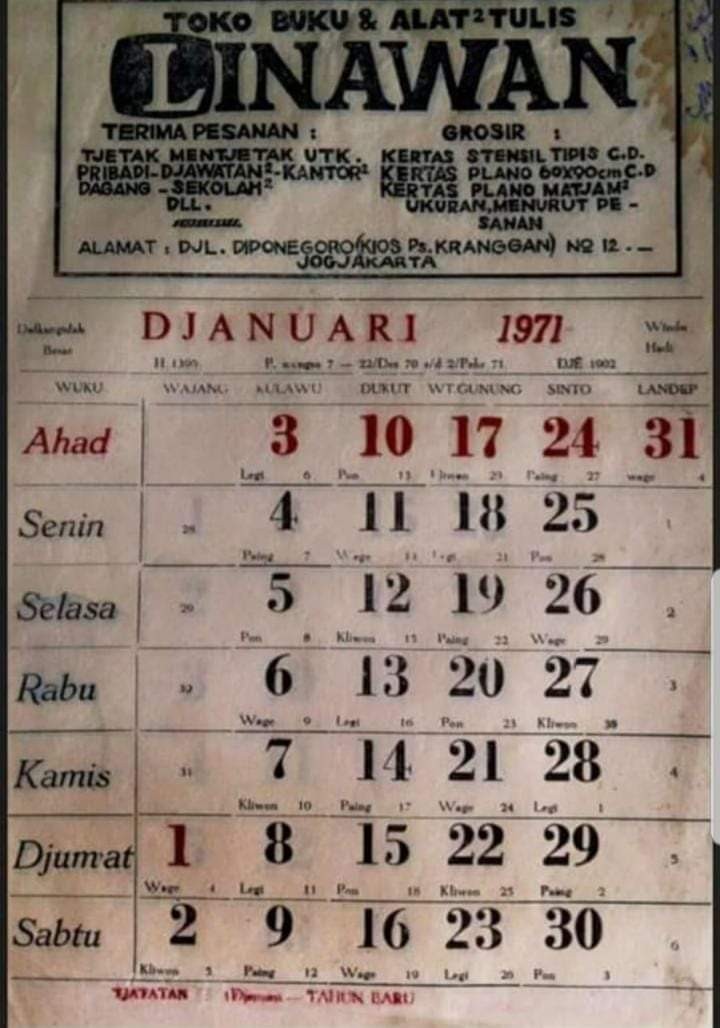 TOKO BUKU & ALAT²TULIS
LINAWAN
TERIMA PESANAN :
TJETAK MENTJETAK UTK.
PRIBADI-DJAWATAN²-KANTOR²
DAGANG - SEKOLAH²
DLL.
GROSIR :
KERTAS STENSIL TIPIS C.D.
KERTAS PLANO 60X90cm C.D
KERTAS PLANO MATJAM²
UKURAN,MENURUT PE -
SANAN
ALAMAT : DJL. DIPONEGORO(KIOS Ps.KRANGGAN) NO 12 . -
JOGJAKARTA
DJANUARI 1971
Besar
H 1390 P. 7 — 22/Des 70 s/d 2/Pebr 71. DJÉ 1902
WUKU WAJANG KULAWU DUKUT WT.GUNUNG SINTO LANDEP
Ahad 3 10 17 24 31
Legi 6 Pon 13 Kliwon Paing 27 wage 4
Senin 28 4 11 18 25 1
Paing 7 Wage 14 Legi 21 Pon 28
Selasa 29 5 12 19 26 2
Pon 8 Kliwon 15 Paing 22 Wage 29
Rabu 6 13 20 27 3
Wage 9 Legi 16 Pon 23 Kliwon 30
Kamis 31 7 14 21 28 4
Kliwon 10 Paing 17 Wage 24 Legi 1
Djum'at 1 8 15 22 29 5
Wage 4 Legi 11 Pon 18 Kliwon 25 Paing 2
Sabtu 2 9 16 23 30 6
Kliwon 5 Paing 12 Wage 19 Legi 26 Pon 3
TJATATAN 1 Djanuari — TAHUN BARU